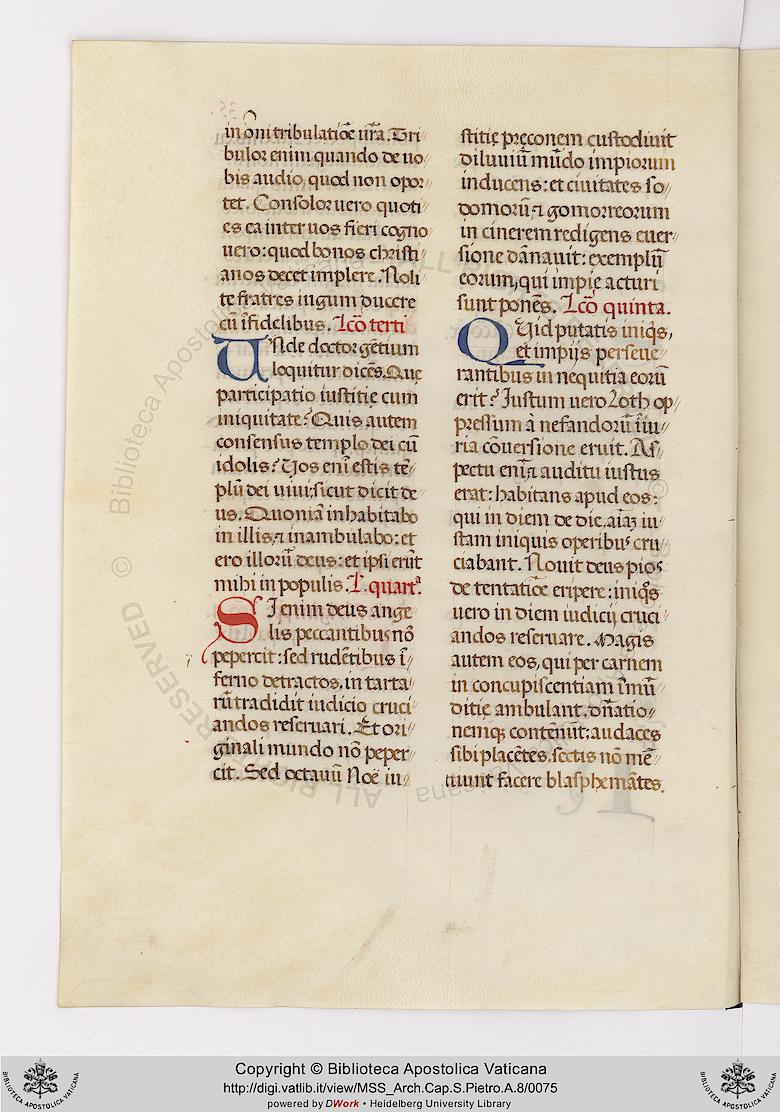 in oni tribulatiõe ur̃a. Tri
bulor enim quando de uo
bis audio quod non opor
tet. Consolor uero quoti
es ea inter uos fieri cogno
uero: quod bonos christi
anos decet implere. Noli
te fratres iugum ducere
cũ ĩfidelibus. Lcõ terti
Vnde doctor gẽtium
loquitur dicẽs. Que
participatio iustitie cum
iniquitate? Quis autem
consensus templo dei cũ
idolis? Vos eni estis tẽ
plũ dei uiui: sicut dicit de
us. Quoniã inhabitabo
in illis, ⁊ inambulabo: et
ero illorũ deus: et ipsi erũt
mihi in populis. L. quartª.
Si enim deus ange
lis peccantibus nõ
pepercit: sed rudẽtibus ĩ
ferno detractos, in tarta
rũ tradidit iudicio cruci
andos reseruari. Et ori
ginali mundo nõ peper
cit. Sed octauũ Noë iu
stitię pręconem custodiuit
diluuiũ mũdo impiorum
inducens: et ciuitates so
domorũ ⁊ gomorreorum
in cinerem redigens euer
sione dãnauit: exemplũ
eorum, qui impie acturi
sunt ponẽs. Lcõ quinta.
Quid putatis iniqs,
et impijs perseue
rantibus in nequitia eorũ
erit? Iustum uero Loth op
pressum à nefandorũ ĩiu
ria cõuersione eruit. As
pectu eni ⁊ auditu iustus
erat: habitans apud eos:
qui in diem de die, aiaz iu
stam iniquis operibus cru
ciabant. Nouit deus pios
de tentatiõe eripere: iniqs
uero in diem iudicij cruci
andos reseruare. Magis
autem eos, qui per carnem
in concupiscentiam ĩmũ
ditie ambulant, dñatio
nemq; contẽnũt: audaces
sibi placẽtes. sectas nõ mẽ
tuunt facere blasphemãtes.
© Biblioteca Apostolica Vaticana
ALL RIGHTS RESERVED
Copyright © Biblioteca Apostolica Vaticana
http://digi.vatlib.it/view/MSS_Arch.Cap.S.Pietro.A.8/0075
powered by DWork • Heidelberg University Library
BIBLIOTECA APOSTOLICA VATICANA
BIBLIOTECA APOSTOLICA VATICANA